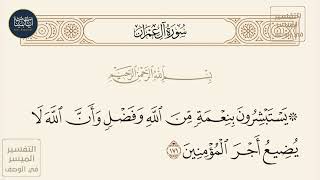 سُورَةُ آلِ عِمۡرَانَ
التفسير
الميسر
في الوصف
بِسۡمِ ٱللَّهِ ٱلرَّحۡمَٰنِ ٱلرَّحِيمِ
۞ يَسۡتَبۡشِرُونَ بِنِعۡمَةٖ مِّنَ ٱللَّهِ وَفَضۡلٖ وَأَنَّ ٱللَّهَ لَا
يُضِيعُ أَجۡرَ ٱلۡمُؤۡمِنِينَ ١٧١
التفسير
الميسر
في الوصف